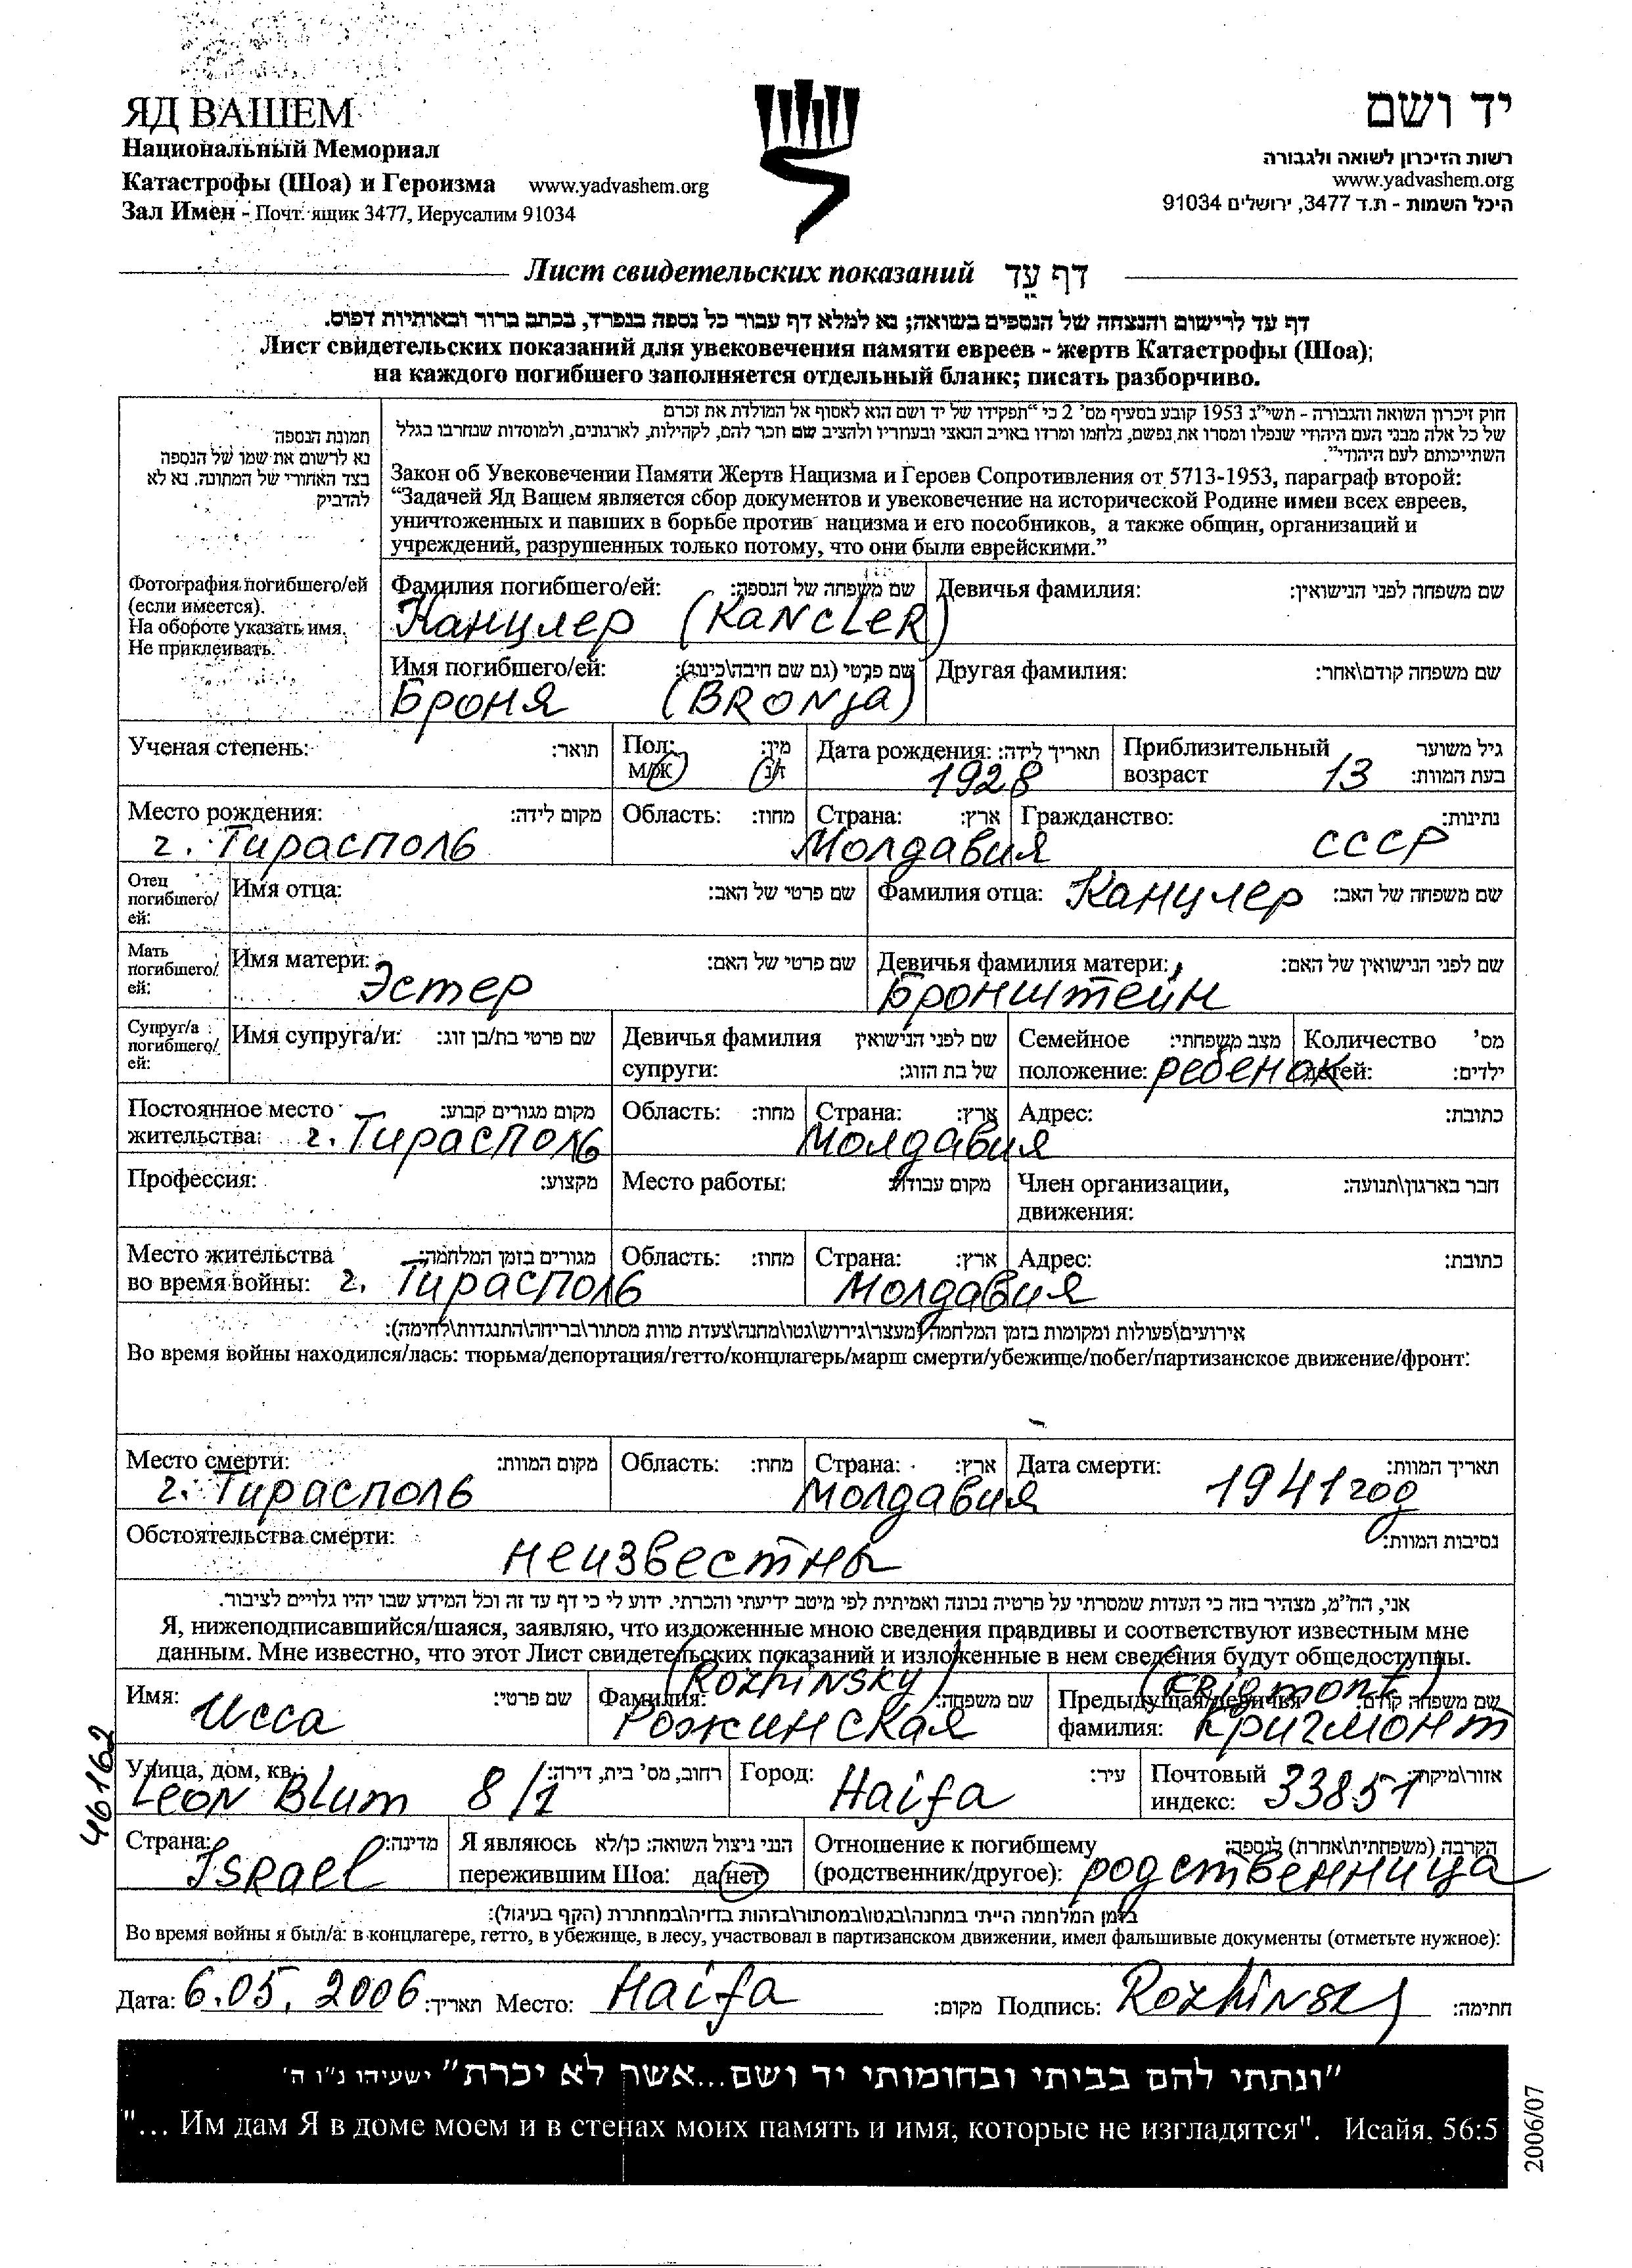 ЯД ВАШЕМ
יד ושם
Национальный Мемориал
Катастрофы (Шоа) и Героизма www.yadvashem.org
Зал Имен - Почт. ящик 3477, Иерусалим 91034
רשות הזיכרון לשואה ולגבורה
www.yadvashem.org
היכל השמות - ת.ד 3477, ירושלים 91034
Лист свидетельских показаний דף עֵד
דף עד לרישום והנצחה של הנספים בשואה; נא למלא דף עבור כל נספה בנפרד, בכתב ברור ובאותיות דפוס.
Лист свидетельских показаний для увековечения памяти евреев - жертв Катастрофы (Шоа);
на каждого погибшего заполняется отдельный бланк; писать разборчиво.
תמונת הנספה
נא לרשום את שמו של הנספה
בצד האחורי של התמונה. נא לא
להדביק
חוק זיכרון השואה והגבורה - תשי"ג 1953 קובע בסעיף מס' 2 כי "תפקידו של יד ושם הוא לאסוף אל המולדת את זכרם
של כל אלה מבני העם היהודי שנפלו ומסרו את נפשם, נלחמו ומרדו באויב הנאצי ובעוזריו ולהציב שם וזכר להם, לקהילות, לארגונים, ולמוסדות שנחרבו בגלל
השתייכותם לעם היהודי".
Закон об Увековечении Памяти Жертв Нацизма и Героев Сопротивления от 5713-1953, параграф второй:
“Задачей Яд Вашем является сбор документов и увековечение на исторической Родине имен всех евреев,
уничтоженных и павших в борьбе против нацизма и его пособников, а также общин, организаций и
учреждений, разрушенных только потому, что они были еврейскими.”
Фотография погибшего/ей
(если имеется).
На обороте указать имя.
Не приклеивать.
Фамилия погибшего/ей: שם משפחה של הנספה: Девичья фамилия: שם משפחה לפני הנישואין:
Канцлер (KANCLER)
Имя погибшего/ей: שם פרטי (גם שם חיבה\כינוי): Другая фамилия: שם משפחה קודם\אחר:
Броня (BRONJa)
Ученая степень: תואר: Пол: מין: Дата рождения: תאריך לידה: Приблизительный גיל משוער
м/ж ז/נ 1928 возраст 13 בעת המוות:
Место рождения: מקום לידה: Область: מחוז: Страна: ארץ: Гражданство: נתינות:
г. Тирасполь Молдавия СССР
Отец погибшего/ей: Имя отца: שם פרטי של האב: Фамилия отца: Канцлер שם משפחה של האב:
Мать погибшего/ей: Имя матери: שם פרטי של האם: Девичья фамилия матери: שם לפני הנישואין של האם:
Эстер Бронштейн
Супруг/а погибшего/ей: Имя супруга/и: שם פרטי בת/בן זוג: Девичья фамилия שם לפני הנישואין Семейное מצב משפחתי: Количество מס'
супруги: של בת הזוג: положение: ребенок детей: ילדים:
Постоянное место מקום מגורים קבוע: Область: מחוז: Страна: ארץ: Адрес: כתובת:
жительства: г. Тирасполь Молдавия
Профессия: מקצוע: Место работы: מקום עבודה: Член организации, חבר בארגון\תנועה:
движения:
Место жительства מגורים בזמן המלחמה: Область: מחוז: Страна: ארץ: Адрес: כתובת:
во время войны: г. Тирасполь Молдавия
אירועים\פעולות ומקומות בזמן המלחמה (מעצר\גירוש\גטו\מחנה\צעדת מוות מסתור\בריחה\התנגדות\לחימה):
Во время войны находился/лась: тюрьма/депортация/гетто/концлагерь/марш смерти/убежище/побег/партизанское движение/фронт:
Место смерти: מקום המוות: Область: מחוז: Страна: ארץ: Дата смерти: תאריך המוות:
г. Тирасполь Молдавия 1941 год
Обстоятельства смерти: נסיבות המוות:
неизвестны
אני, הח"מ, מצהיר בזה כי העדות שמסרתי על פרטיה נכונה ואמיתית לפי מיטב ידיעתי והכרתי. ידוע לי כי דף עד זה וכל המידע שבו יהיו גלויים לציבור.
Я, нижеподписавшийся/шаяся, заявляю, что изложенные мною сведения правдивы и соответствуют известным мне
данным. Мне известно, что этот Лист свидетельских показаний и изложенные в нем сведения будут общедоступны.
(Rozhinsky) (Krigmont)
Имя: שם פרטי: Фамилия: שם משפחה: Предыдущая/девичья שם משפחה קודם:
Исса Рожинская фамилия: Кригмонт
Улица, дом, кв.: רחוב, מס' בית, דירה: Город: עיר: Почтовый אזור\מיקוד:
Leon Blum 8/1 Haifa индекс: 33851
46162
Страна: מדינה: Я являюсь הנני ניצול השואה: כן/לא Отношение к погибшему הקרבה (משפחתית\אחרת) לנספה:
Israel пережившим Шоа: да/нет (родственник/другое): родственница
בזמן המלחמה הייתי במחנה\בגטו\במסתור\בזהות בדויה\במחתרת (הקף בעיגול):
Во время войны я был/а: в концлагере, гетто, в убежище, в лесу, участвовал в партизанском движении, имел фальшивые документы (отметьте нужное):
Дата: 6.05.2006 תאריך: Место: Haifa מקום: Подпись: Rozhinsky חתימה:
"ונתתי להם בביתי ובחומותי יד ושם...אשר לא יכרת" ישעיהו נ"ו ה'
"... Им дам Я в доме моем и в стенах моих память и имя, которые не изгладятся". Исайя, 56:5
2006/07